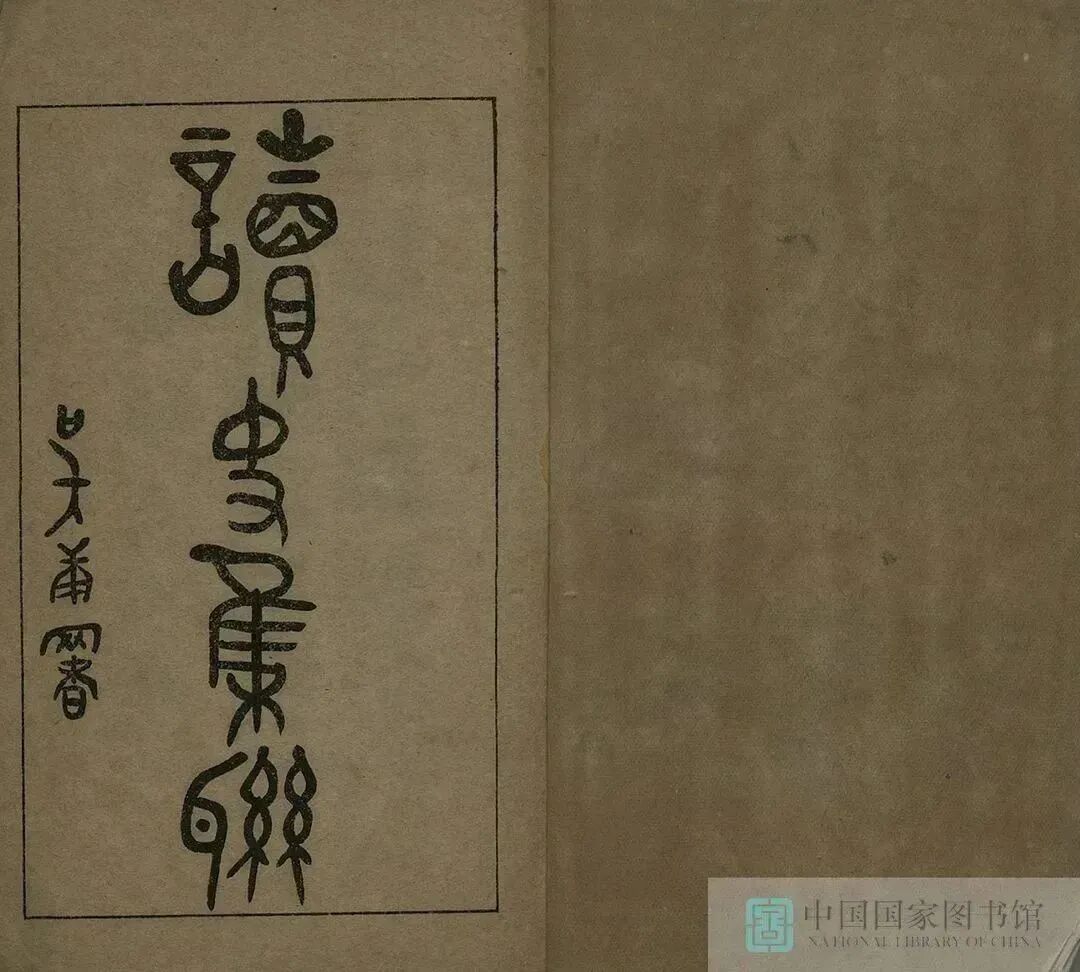 讀史集聯
吴莆署
中国国家图书馆
NATIONAL LIBRARY OF CHINA